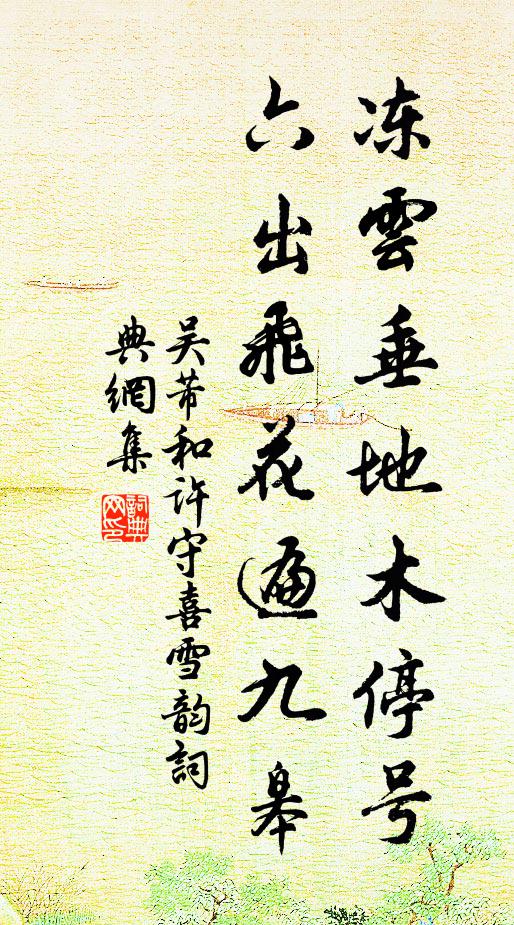 冻雲垂地木停号
六出飛花遍九皋
吴芾和许守喜雪韵詞
典網集
詞典网印